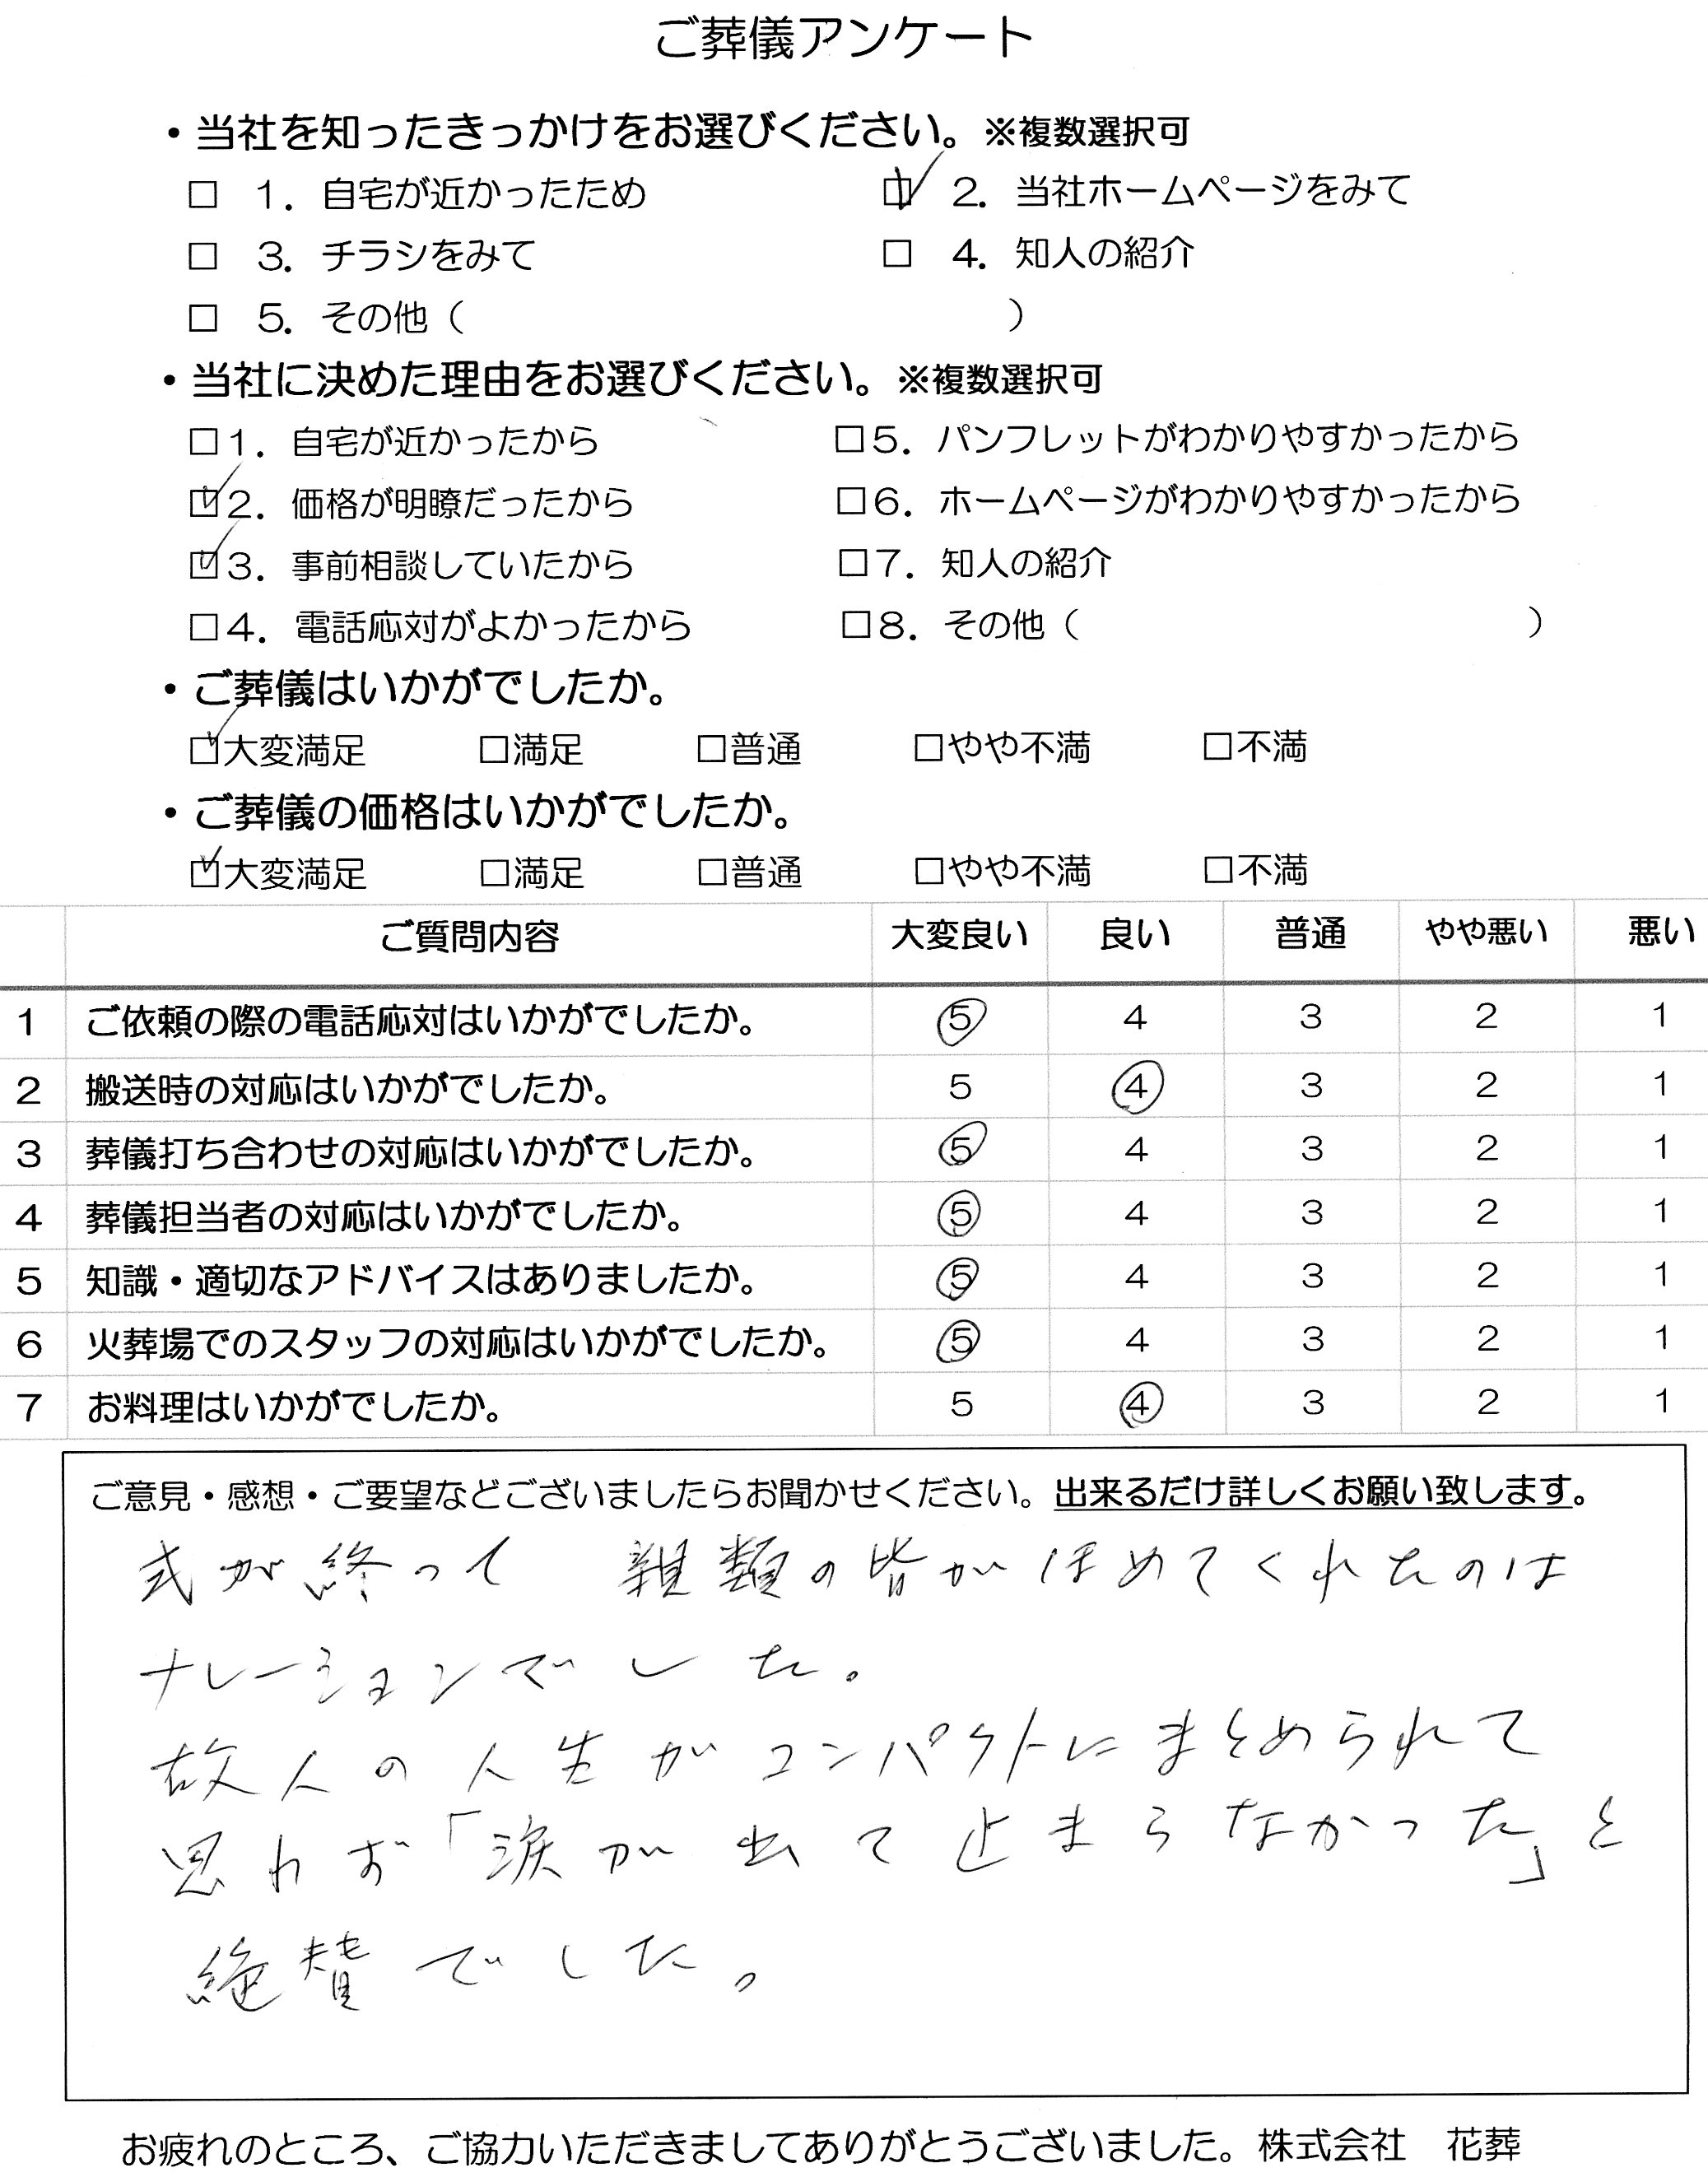 ご葬儀アンケート
・当社を知ったきっかけをお選びください。※複数選択可
□ 1. 自宅が近かったため ☑ 2. 当社ホームページをみて
□ 3. チラシをみて □ 4. 知人の紹介
□ 5. その他（ ）
・当社に決めた理由をお選びください。※複数選択可
□1. 自宅が近かったから □5. パンフレットがわかりやすかったから
☑2. 価格が明瞭だったから □6. ホームページがわかりやすかったから
☑3. 事前相談していたから □7. 知人の紹介
□4. 電話応対がよかったから □8. その他（ ）
・ご葬儀はいかがでしたか。
☑大変満足 □満足 □普通 □やや不満 □不満
・ご葬儀の価格はいかがでしたか。
☑大変満足 □満足 □普通 □やや不満 □不満
ご質問内容 大変良い 良い 普通 やや悪い 悪い
1 ご依頼の際の電話応対はいかがでしたか。 5 4 3 2 1
2 搬送時の対応はいかがでしたか。 5 4 3 2 1
3 葬儀打ち合わせの対応はいかがでしたか。 5 4 3 2 1
4 葬儀担当者の対応はいかがでしたか。 5 4 3 2 1
5 知識・適切なアドバイスはありましたか。 5 4 3 2 1
6 火葬場でのスタッフの対応はいかがでしたか。 5 4 3 2 1
7 お料理はいかがでしたか。 5 4 3 2 1
ご意見・感想・ご要望などございましたらお聞かせください。出来るだけ詳しくお願い致します。
式が終って 親類の皆がほめてくれたのは
ナレーションでした。
故人の人生がコンパクトにまとめられて
思わず「涙が出て止まらなかった」と
絶賛でした。
お疲れのところ、ご協力いただきましてありがとうございました。株式会社 花葬